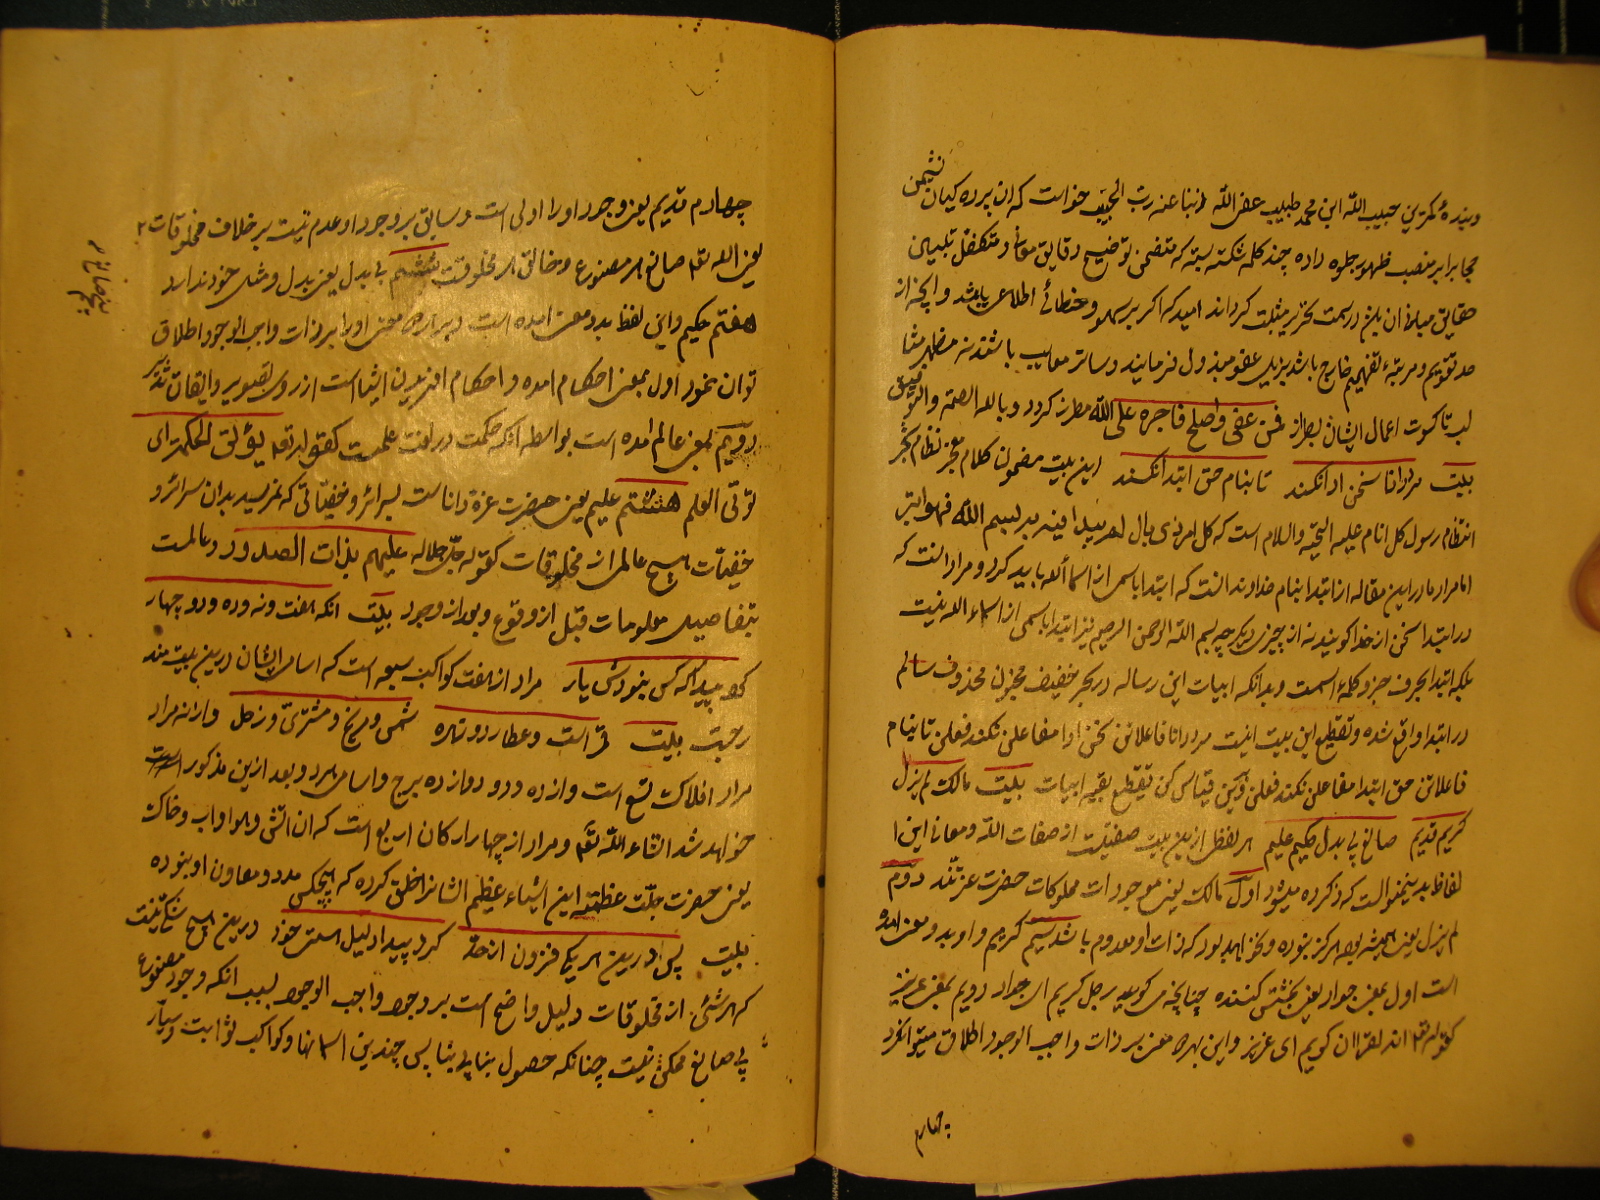 وبنده کمترین حبیب الله ابن محمد طبیب عفی الله ذنبا عنه رب الحبیب خواست که ان پرده کیان نشیمن
حجابرا بر منصب ظهور جلوه داده چند کلمه شکسته بسته که متضمن توضیح دقایق معانی و متکفل تلبیان
حقایق مبانی ان باشد در سمت تحریر مثبت کرداند امید که اکر بر سهو و خطائی اطلاع یابند و انچه از
حد تقویم و مرتبه تفهیم خارج باشد بذیل عفو مبذول فرمایند و ساتر معایب باشند نه مظهر مثا
لب تا کسوت اعمال ایشان بطراز فمن عفی واصلح فاجره علی الله مطرز کردد وبالله العصمه والتوفیق
بیت مرد دانا سخن ادا نکند تا بنام حق ابتدا نکند این بیت مضمون کلام معجز نظام کثیر
انتظام رسول کل انام علیه التحیه والسلام است که کل امر ذی بال لم یبدا فیه ببسم الله فهو ابتر
اما مراد ما در این مقاله از ابتدا بنام خداوند انست که ابتدا باسمی از اسماء الله باید کرد و مراد انست که
در ابتدا سخن از خدا کویند نه از چیزی دیکر چه بسم الله الرحمن الرحیم نیز ابتدا باسمی از اسماء الله نیست
بلکه ابتدا بحرف جر و کلمه اسمست و بدانکه ابیات این رساله در بحر خفیف مخبون محذوف سالم
در ابتدا واقع شده و تقطیع این بیت اینست مرد دانا فاعلاتن سخن ادا مفاعلن نکند فعلن تا بنام
فاعلاتن حق ابتدا مفاعلن نکند فعلن و برین قیاس کن تقطیع بقیه ابیات بیت مالک لم یزل
کریم قدیم صانع بی بدل حکیم علیم هر لفظ از این بیت صفتیست از صفات الله و معانی این ا
لفاظ بدینمنوالست که ذکر کرده میشود اول مالک یعنی موجودات مملوکات حضرت عزتند دوم
لم یزل یعنی همیشه بود هرکز نبوده و نخواهد بود که ذات او معدوم باشد سیم کریم و او بدو معنی امده
است اول بمعنی جواد یعنی بخشش کننده چنانچه می کویند رجل کریم ای جواد دویم بمعنی عزیز
کقوله تعالی انه لقران کریم ای عزیز و این بهر دو معنی بر ذات واجب الوجود اطلاق میتوان کرد
چهارم
چهارم قدیم یعنی وجود او را اولی است و سابق بر وجود او عدم نیست بر خلاف مخلوقات
یعنی الله تعالی صانع هر مصنوع و خالق هر مخلوقست ششم بی بدل یعنی بدل و مثل خود ندارد
هفتم حکیم و این لفظ بدو معنی امده است و بر هر دو معنی او را بر ذات واجب الوجود اطلاق
توان نمود اول بمعنی احکام امده و احکام افریدن اشیا است از روی تصویر و اتقان تدبیر
دویم بمعنی عالم امده است بواسطه انکه حکمت در لغت علمست کقوله تعالی یؤتی الحکمة ای
یؤتی العلم هشتم علیم یعنی حضرت عزة داناست بسرائر و خفیاتی که نمیرسد بدان سرائر و
خفیات هیچ عالمی از مخلوقات کقوله جل جلاله علیم بذات الصدور و عالمست
بتفاصیل معلومات قبل از وقوع و بعد از وجود بیت انکه هفت و نه و ده و دو چهار
کرد پیدا که کس نبودش یار مراد از هفت کواکب سبعه است که اسامی ایشان درین بیت مند
رجست بیت قمر است و عطارد و زهره شمس و مریخ و مشتری و زحل و از نه مراد
مراد افلاک تسع است و از ده و دو دوازده برج و اسامی هر دو بعد ازین مذکور است
خواهد شد انشاء الله تعالی و مراد از چهار ارکان اربع است که ان اتش و هوا و اب و خاک
یعنی حضرت جلت عظمته این اشیاء عظیم الشانرا خلق کرده که هیچکس مدد و معاون او نبوده
بیت پس درین هر یکی فزون از حد کرد پیدا دلیل هستی خود درین هیچ شکی نیست
که هر شئی از مخلوقات دلیل واضح است بر وجود واجب الوجود بسبب انکه وجود مصنوع
بی صانع ممکن نیست چنانکه حصول بنا بی بنا پس چندین اسمانها و کواکب ثوابت و سیار